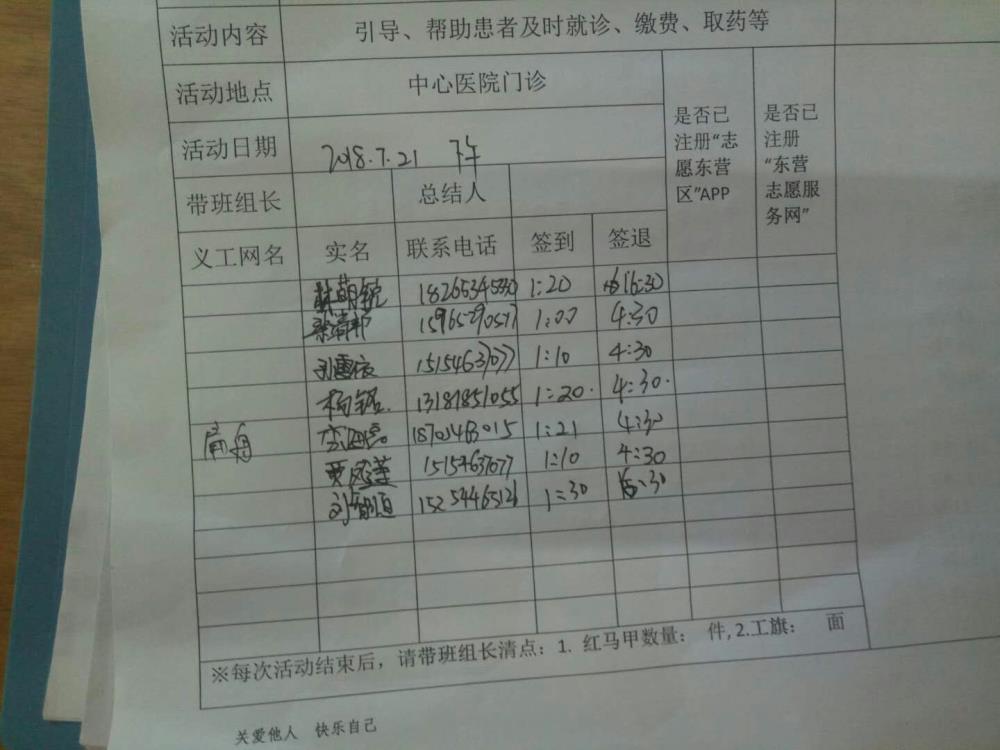 活动内容 引导、帮助患者及时就诊、缴费、取药等
活动地点 中心医院门诊
是否已注册“志愿东营区”APP
是否已注册“东营志愿服务网”
活动日期 2018.7.21 下午
带班组长 总结人
义工网名 实名 联系电话 签到 签退
1:20 16:30
15965290577 1:00 4:30
15154637077 1:10 4:30
杨铭 13181851055 1:20 4:30
扁舟 18701483015 1:21 4:30
贾凤莲 15154637077 1:10 4:30
15254465126 1:30
※每次活动结束后，请带班组长清点：1. 红马甲数量： 件, 2.工旗： 面
关爱他人 快乐自己